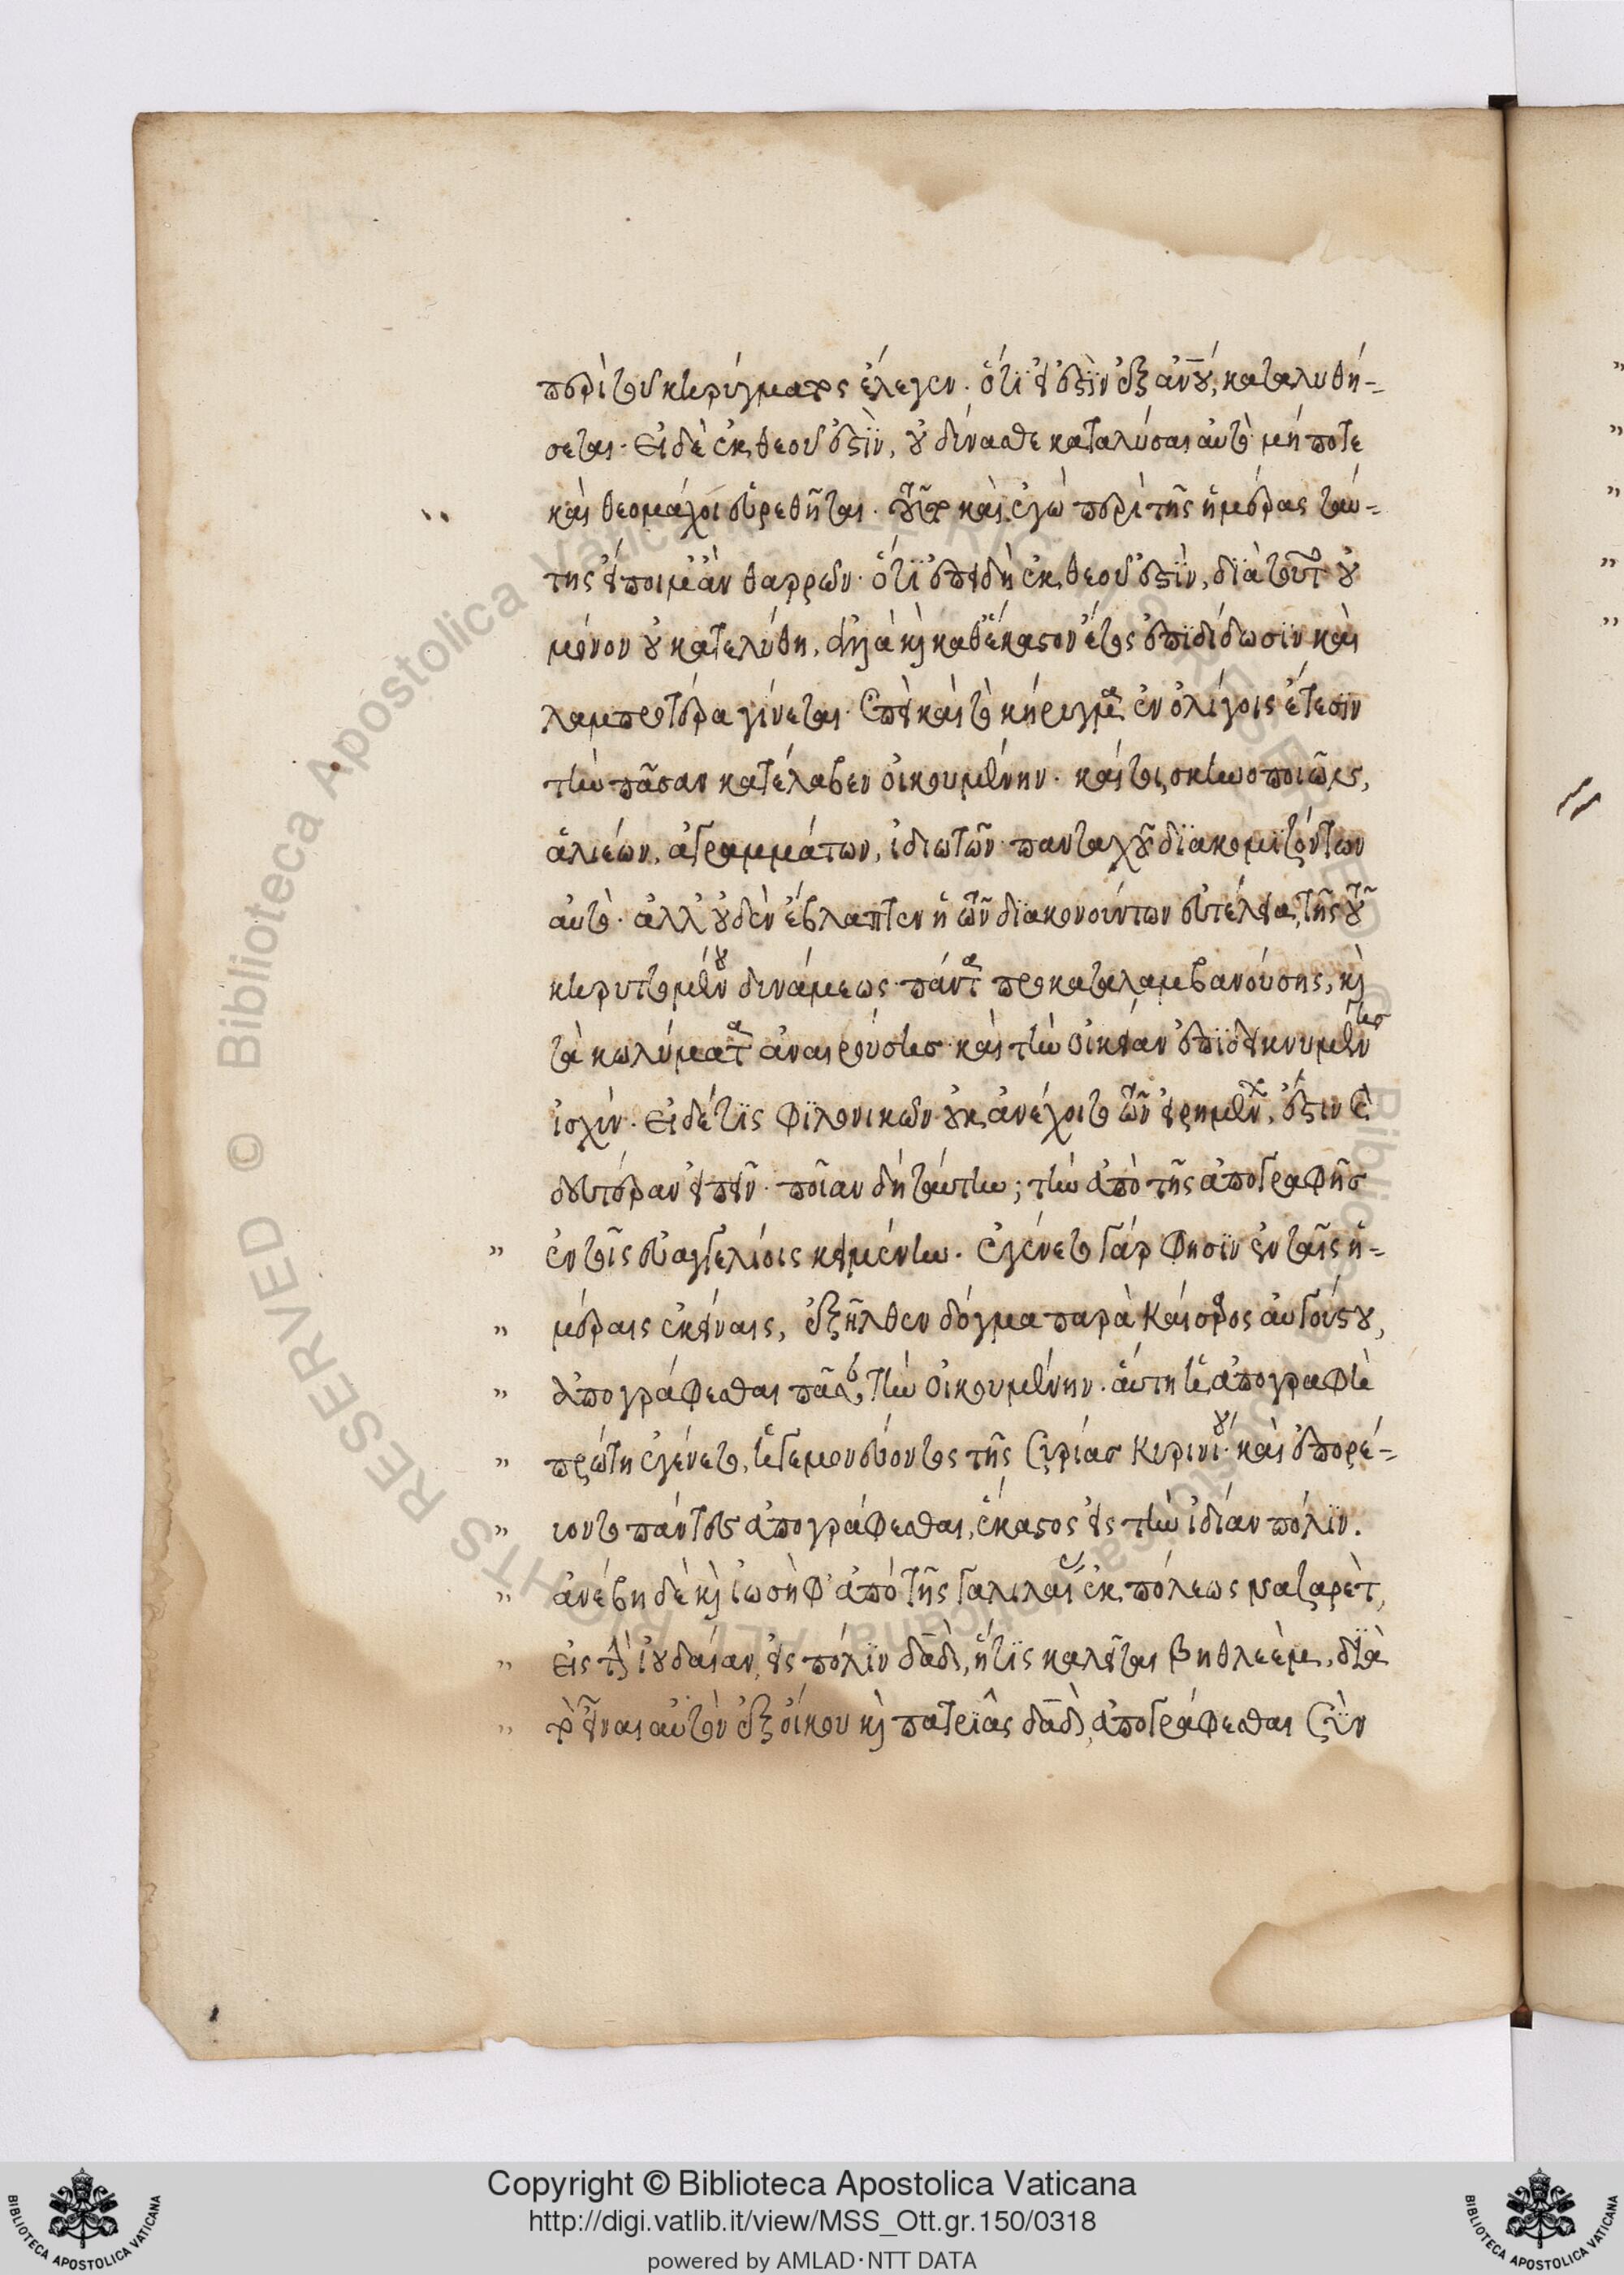 περὶ τοῦ κηρύγματος ἔλεγεν. ὅτι εἰ ἐστὶν ἐξ ἀν̅ου, καταλυθή-
σεται. εἰ δὲ ἐκ θεοῦ ἐστὶν, οὐ δύνασθε καταλύσαι αὐτὸ· μήποτε
καὶ θεομάχοι εὑρεθῆται. οὕτω καὶ ἐγὼ περὶ τῆς ἡμέρας ταύ-
της εἴποιμι ἂν θαρρῶν. ὅτι ἐπειδὴ ἐκ θεοῦ ἐστὶν, διὰ τοῦτο οὐ
μόνον οὐ κατελύθη, ἀλλὰ καὶ καθ' ἕκαστον ἔτος ἐπιδίδωσιν καὶ
λαμπροτέρα γίνεται. ἐπεὶ καὶ τὸ κήρυγμα ἐν ὀλίγοις ἔτεσιν
τὴν πᾶσαν κατέλαβεν οἰκουμένην. καί τοι σκηνοποιῶν,
ἁλιέων, ἀγραμμάτων, ἰδιωτῶν πανταχοῦ διακομιζόντων
αὐτὸ. ἀλλ' οὐδὲν ἔβλαπτεν ἡ τῶν διακονούντων εὐτέλεια, τῆς τοῦ
κηρυττομένου δυνάμεως πάντα προκαταλαμβανούσης, καὶ
τὰ κωλύματα ἀναιρούσης καὶ τὴν οἰκείαν ἐπιδεικνυμένης
ἰσχύν. εἰ δέ τις φιλονικῶν οὐκ ἀνέχοιτο τῶν εἰρημένων, ἔστιν καὶ
δευτέραν εἰπεῖν. ποίαν δὴ ταύτην; τὴν ἀπὸ τῆς ἀπογραφῆς
" ἐν τοῖς εὐαγγελίοις κειμένην. ἐγένετο γάρ φησιν ἐν ταῖς ἡ-
" μέραις ἐκείναις, ἐξῆλθεν δόγμα παρὰ Καίσαρος αὐγούστου,
" ἀπογράφεσθαι πᾶσαν τὴν οἰκουμένην. αὕτη ἡ ἀπογραφὴ
" πρώτη ἐγένετο, ἡγεμονεύοντος τῆς Συρίας Κυρινίου. καὶ ἐπορεύ-
" οντο πάντες ἀπογράφεσθαι, ἕκαστος εἰς τὴν ἰδίαν πόλιν.
" ἀνέβη δὲ καὶ ἰωσὴφ ἀπὸ τῆς Γαλιλαίας ἐκ πόλεως Ναζαρὲτ,
" εἰς τὴν ἰουδαίαν, εἰς πόλιν δα̅δ, ἥτις καλεῖται Βηθλεὲμ, διὰ
" τὸ εἶναι αὐτὸν ἐξ οἴκου καὶ πατριᾶς δα̅δ, ἀπογράφεσθαι σὺν
Copyright © Biblioteca Apostolica Vaticana
http://digi.vatlib.it/view/MSS_Ott.gr.150/0318
powered by AMLAD·NTT DATA
BIBLIOTECA APOSTOLICA VATICANA
BIBLIOTECA APOSTOLICA VATICANA